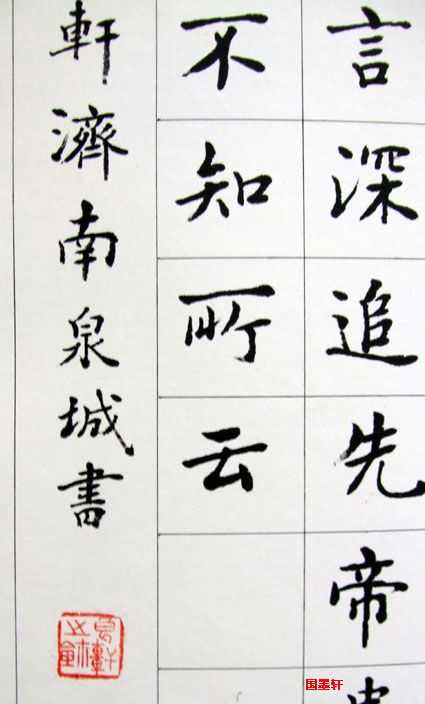 言深追先帝
不知所云
軒濟南泉城書
国墨轩